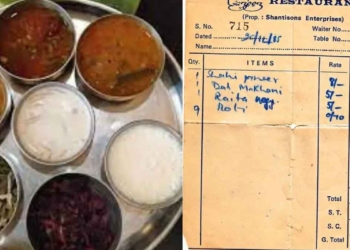 RESTAURAN
(Prop. : Shantisons Enterprises)
S. No. 715 Waiter No.
Dated 20/12/85 Table No.
Name
Qty. ITEMS Rate
1 Shahi paneer 8/-
1 Dal Makhani 5/-
1 Raita 5/-
9 Roti 0/70
Total
S. T.
S. C.
G. Total